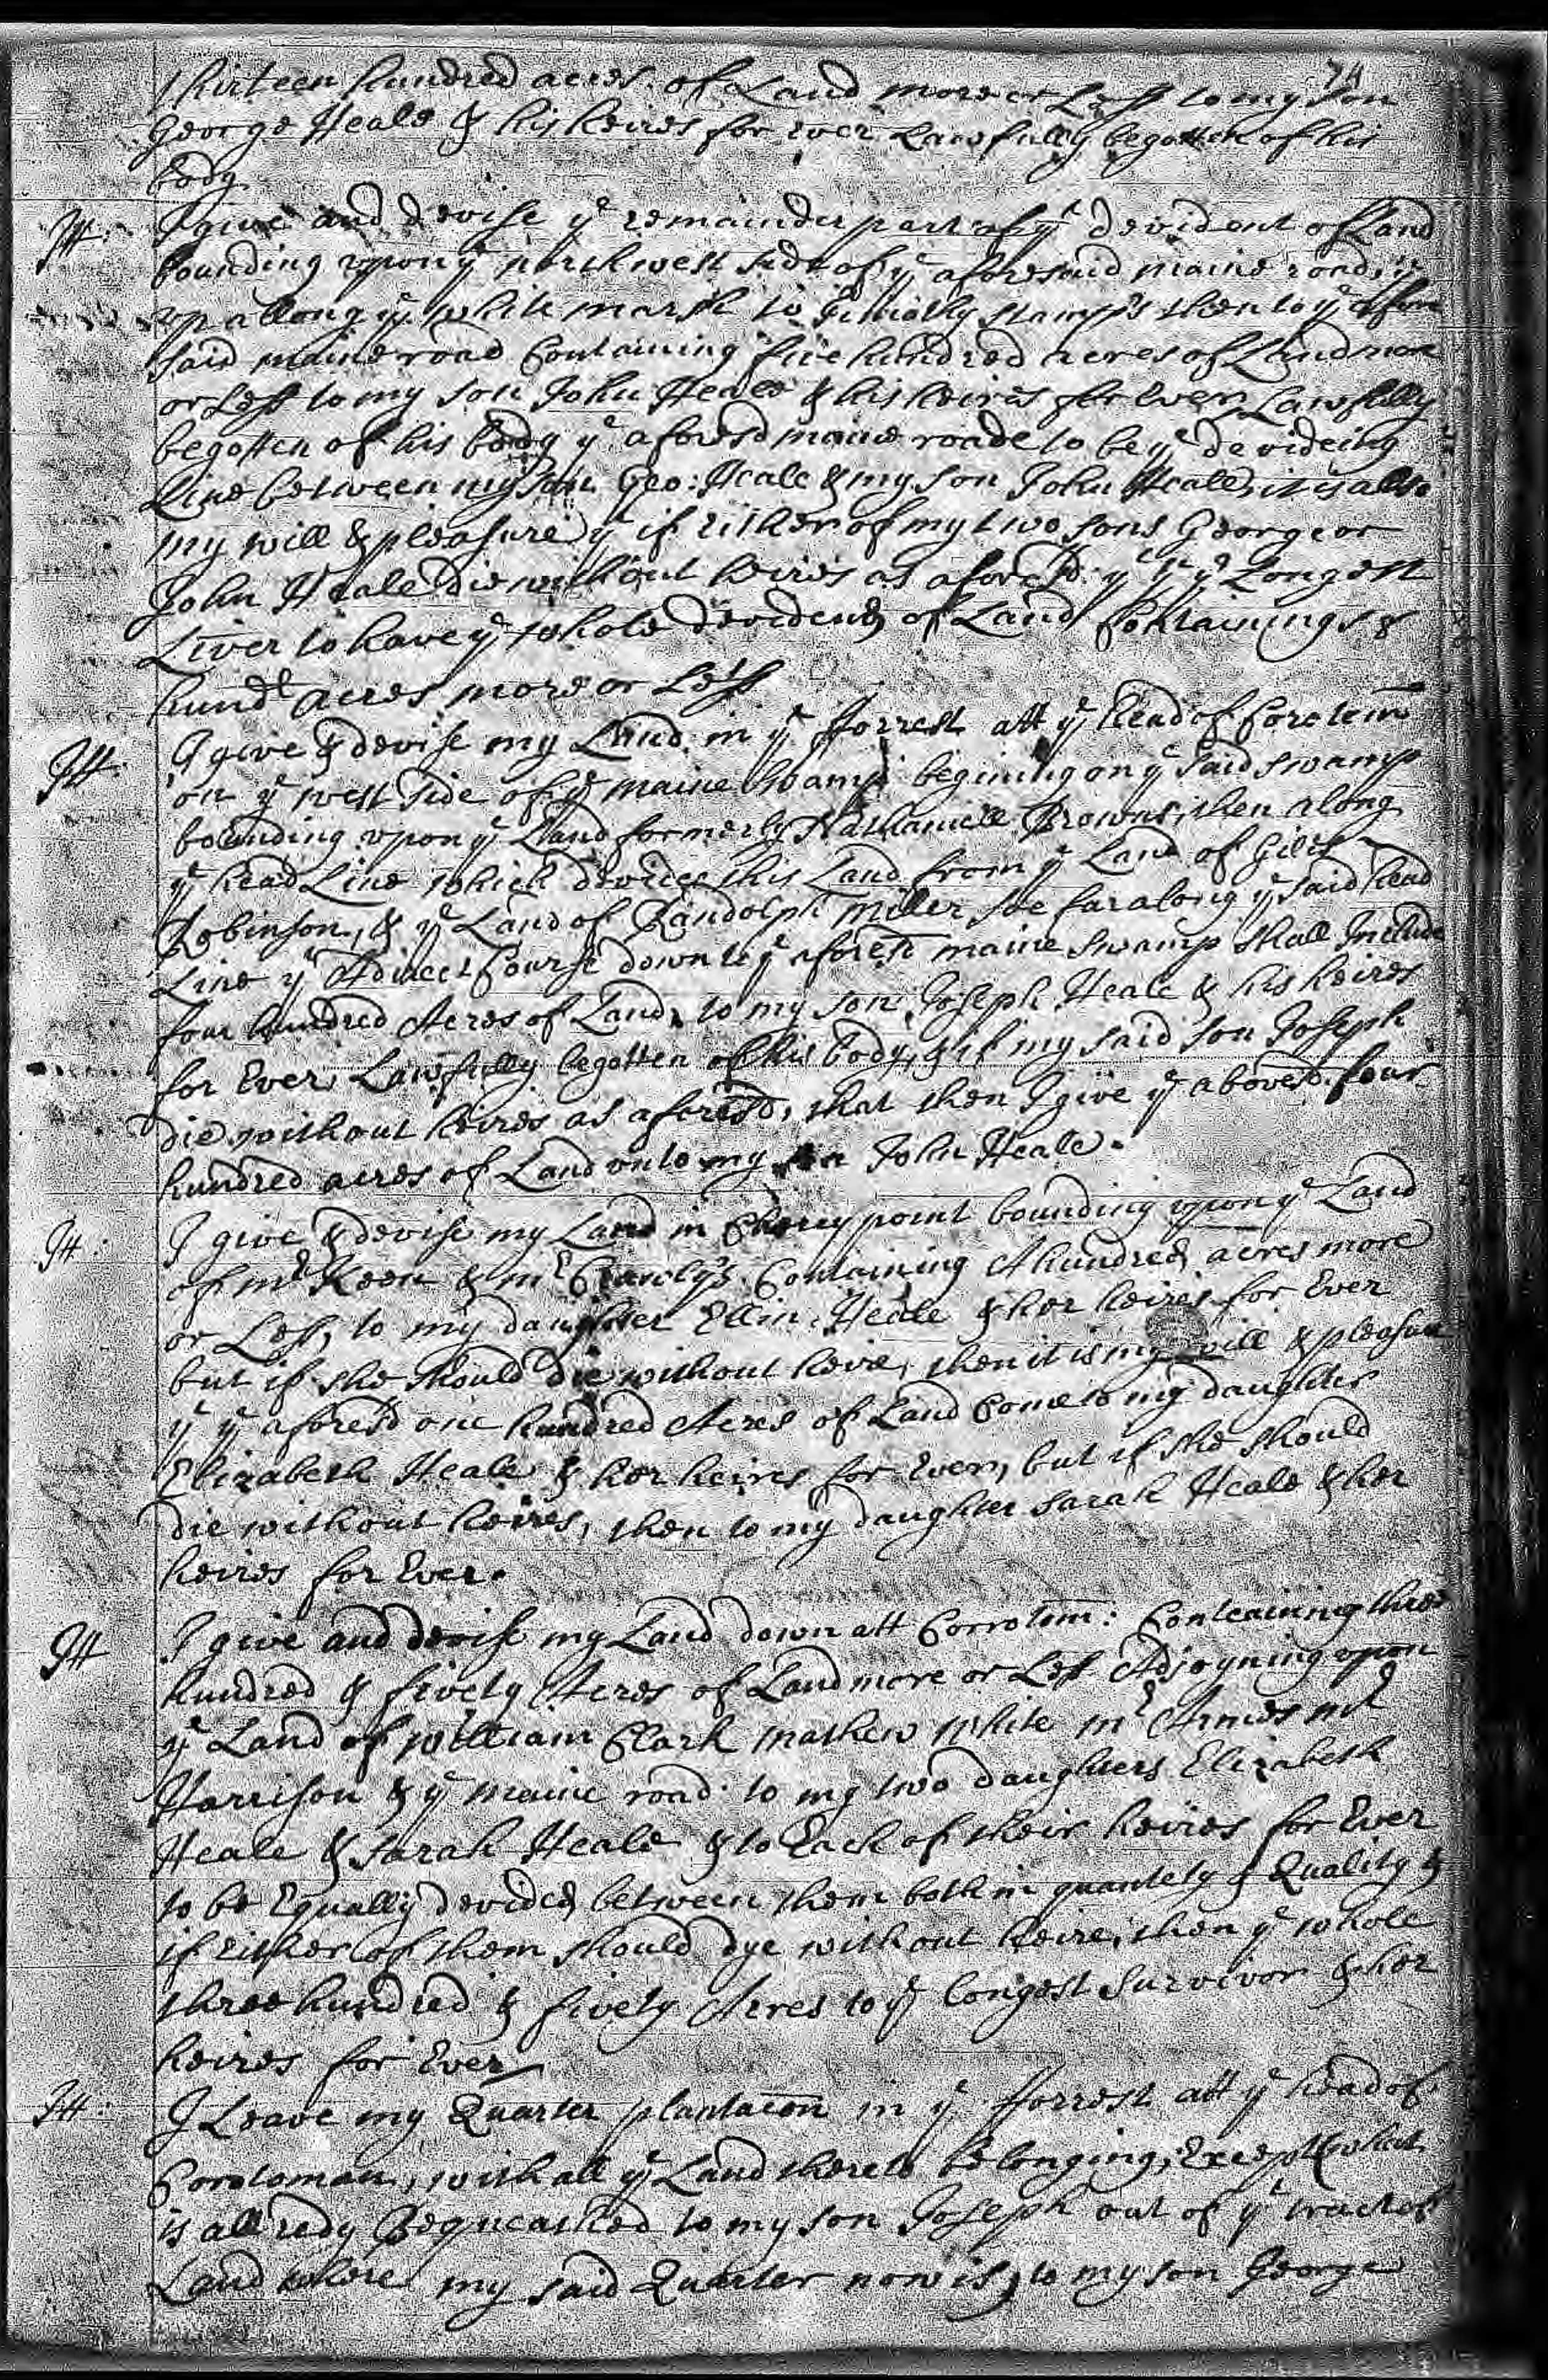 74
thirteen hundred acres of Land more or Less to my son
George Heale & his heires for ever Lawfully begotten of his
body
It: I give and devise ye remainder part of yt devident of Land
bounding upon ye northwest side of ye aforesaid maine road,
up allong ye white marsh to Timothy Stamps then to ye afore
said maine road Containing five hundred acres of Land more
or Less to my son John Heale & his heires for Ever Lawfully
begotten of his body ye aforesd maine roade to be ye devideing
Line between my son Geo: Heale & my son John Heale, it is allso
my will & pleasure yt if either of my two sons George or
John Heale die without heires as aforesd: yt yn ye Longest
Liver to have ye whole devidend of Land Containing
hundd acres more or Less
Itt: I give & devise my Land in ye fforrest att ye head of Corotom
on ye west side of ye maine swamp begining on ye said swamp
bounding upon ye Land formerly Nathaniell Browns, then along
ye head Line which devides this Land from ye Land of Giles
Robinson, & ye Land of Randolph Miller soe far along ye said head
Line yt A direct Course down to ye aforesd maine swamp shall Include
four hundred Acres of Land, to my son Joseph Heale & his heires
for Ever Lawfully begotten of his body, & if my said son Joseph
die without heires as aforesd, that then I give ye abovesd four
hundred acres of Land unto my son John Heale.
It: I give & devise my Land in Cherry point bounding upon ye Land
of mr Keen & mr Containing A hundred acres more
or Less, to my daughter Ellin Heale & her heires for Ever
but if she should die without heire, then it is my will & pleasure
yt ye aforesd one hundred Acres of Land Come to my daughter
Elizabeth Heale & her heires for Ever, but if she should
die without heires, then to my daughter Sarah Heale & her
heires for Ever.
Itt I give and devise my Land down att Corrotom: Conteaining three
hundred & fivety Acres of Land more or Less Adjoyning upon
ye Land of William Clark Mathew White mr Armes mr
Harrison & ye maine road to my two daughters Elizabeth
Heale & Sarah Heale & to Each of their heires for Ever
to be Equally devided between them both in quantety & Quality &
if either of them should dye without heire, then ye whole
three hundred & fivety Acres to ye Longest Survivor & her
heires for Ever
It: I Leave my Quarter plantacon in ye fforrest att ye head of
Corotoman, with all ye Land thereto Belonging, Except what
is allredy Bequeathed to my son Joseph out of yt tract of
Land where my said Quarter now is, to my son George